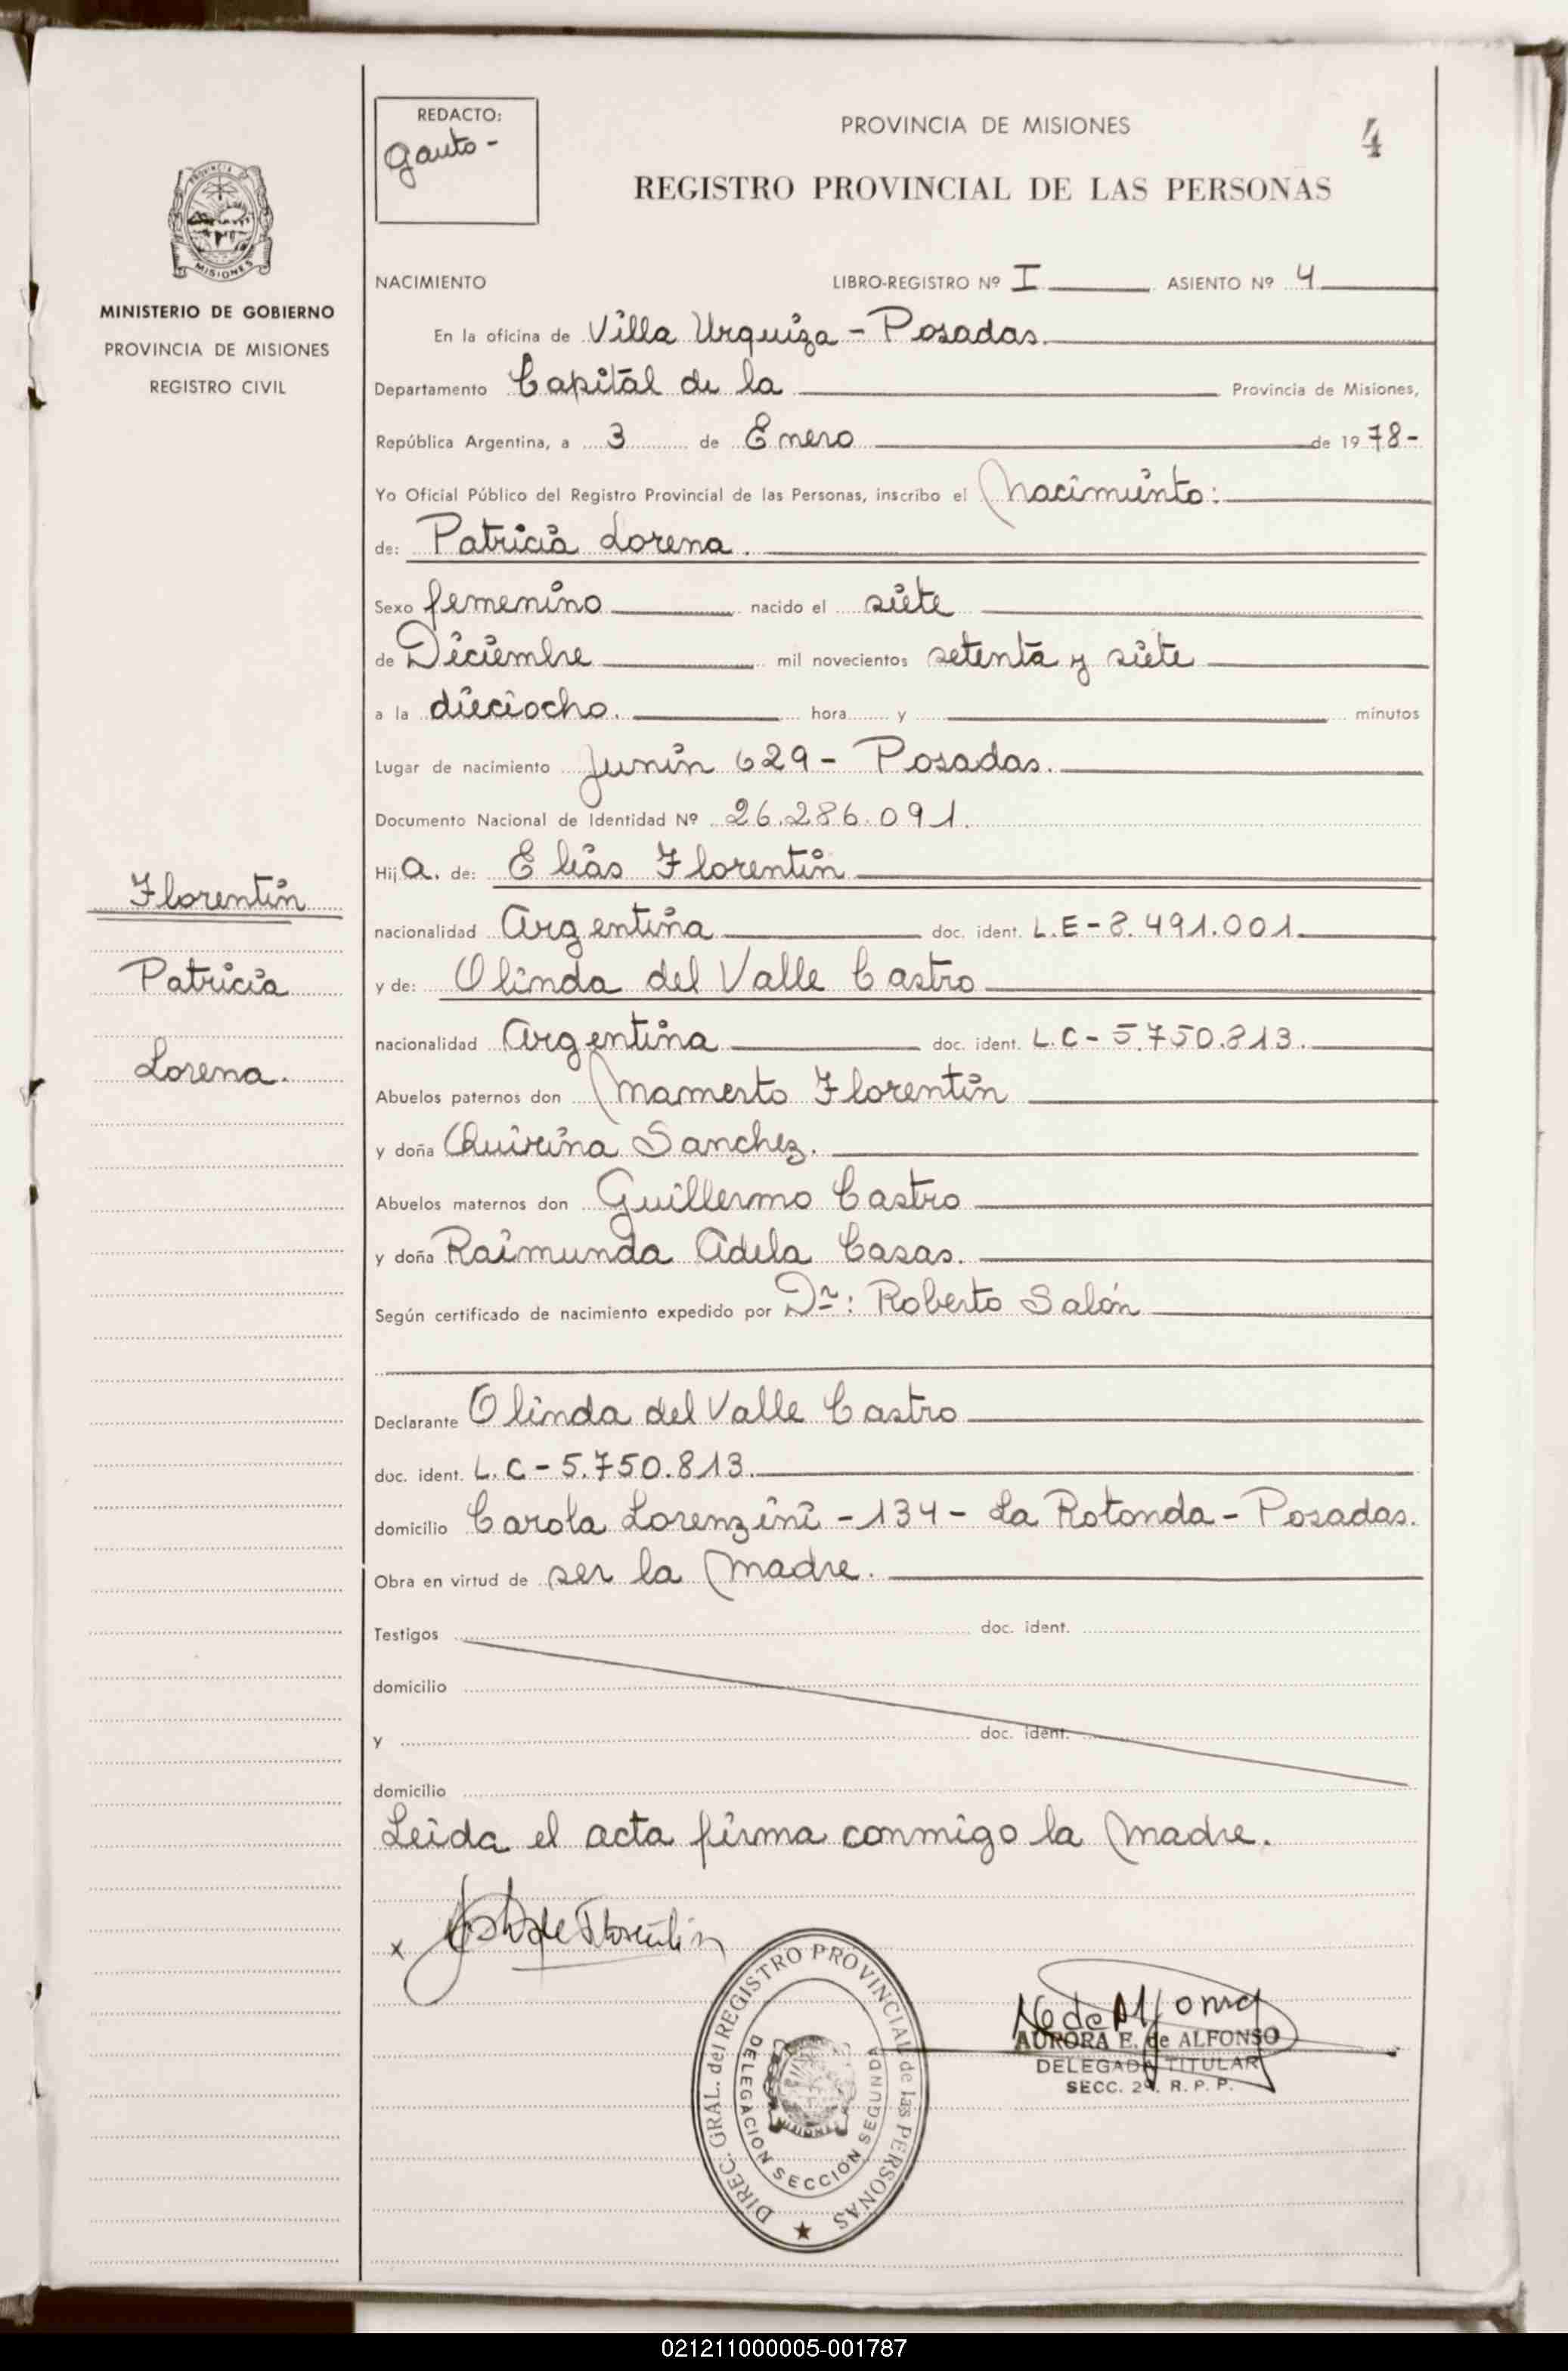 REDACTO:
Gauto-
PROVINCIA DE MISIONES
4
REGISTRO PROVINCIAL DE LAS PERSONAS
PROVINCIA DE
MISIONES
MINISTERIO DE GOBIERNO
PROVINCIA DE MISIONES
REGISTRO CIVIL
NACIMIENTO LIBRO-REGISTRO Nº I ASIENTO Nº 4
En la oficina de Villa Urquiza - Posadas.
Departamento Capital de la Provincia de Misiones,
República Argentina, a 3 de Enero de 1978-
Yo Oficial Público del Registro Provincial de las Personas, inscribo el Nacimiento:
de: Patricia Lorena
Sexo femenino nacido el siete
de Diciembre mil novecientos setenta y siete
a la dieciocho. hora y minutos
Lugar de nacimiento Junín 629 - Posadas.
Documento Nacional de Identidad Nº 26.286.091.
Hija. de: Elías Florentín
nacionalidad Argentina doc. ident. L.E-8.491.001.
y de: Olinda del Valle Castro
nacionalidad Argentina doc. ident. L.C-5.750.813.
Abuelos paternos don Mamerto Florentín
y doña Quirina Sanchez.
Abuelos maternos don Guillermo Castro
y doña Raimunda Adela Casas.
Según certificado de nacimiento expedido por Dr: Roberto Salón
Declarante Olinda del Valle Castro
doc. ident. L.C-5.750.813.
domicilio Carola Lorenzini - 134 - La Rotonda - Posadas.
Obra en virtud de ser la Madre.
Testigos doc. ident.
domicilio
y doc. ident.
domicilio
Leida el acta firma conmigo la Madre.
Florentín
Patricia
Lorena.
x de Florentin
DIREC. GRAL. del REGISTRO PROVINCIAL de las PERSONAS
DELEGACION SECCION SEGUNDA
MISIONES
de Alfonso
AURORA E. de ALFONSO
DELEGADA TITULAR
SECC. 2ª. R. P. P.
021211000005-001787